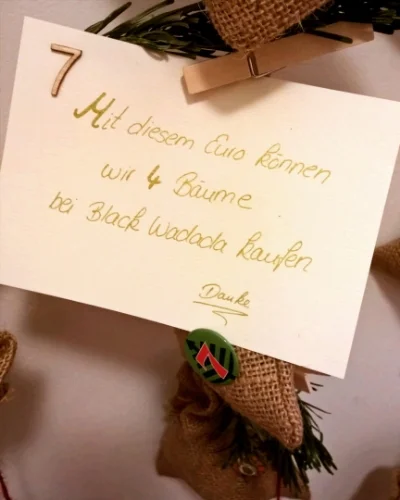 7
Mit diesem Euro können
wir 4 Bäume
bei Black Wadada kaufen
Danke
7